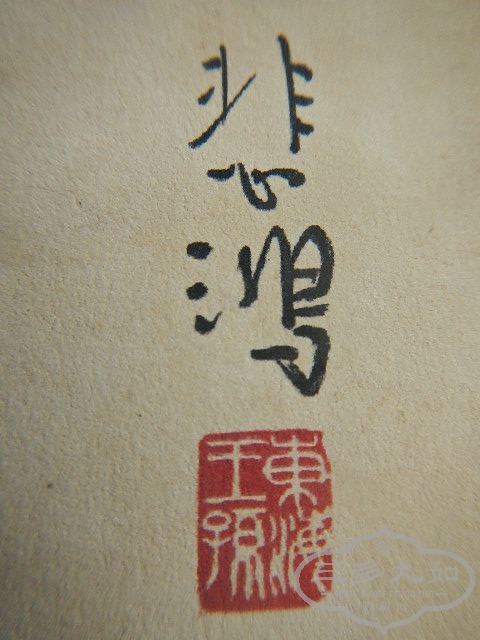 悲鴻
東海
王孫